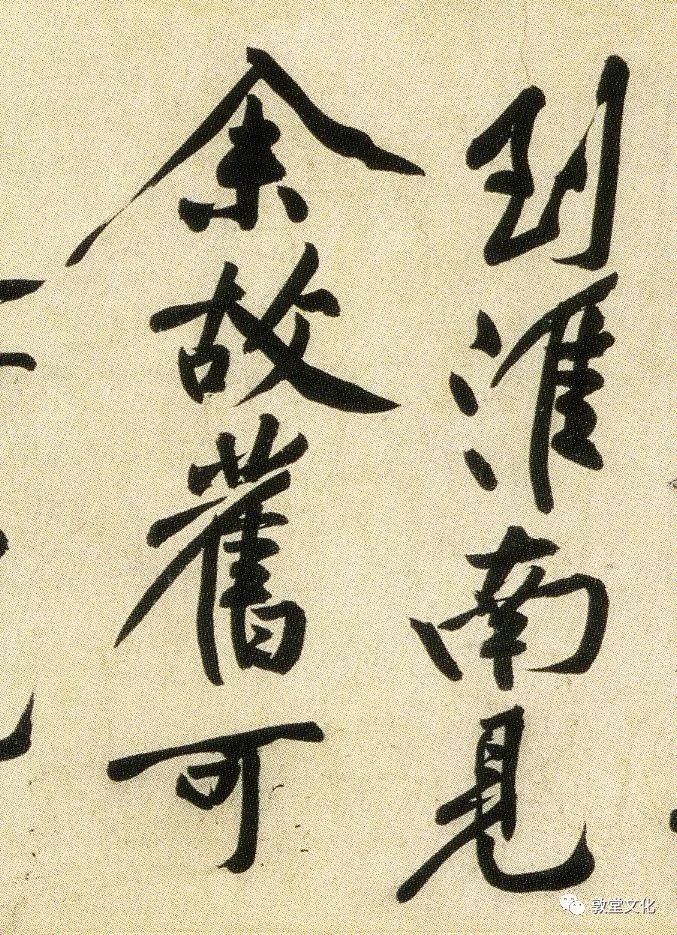 到淮南見
余故舊可
敦堂文化